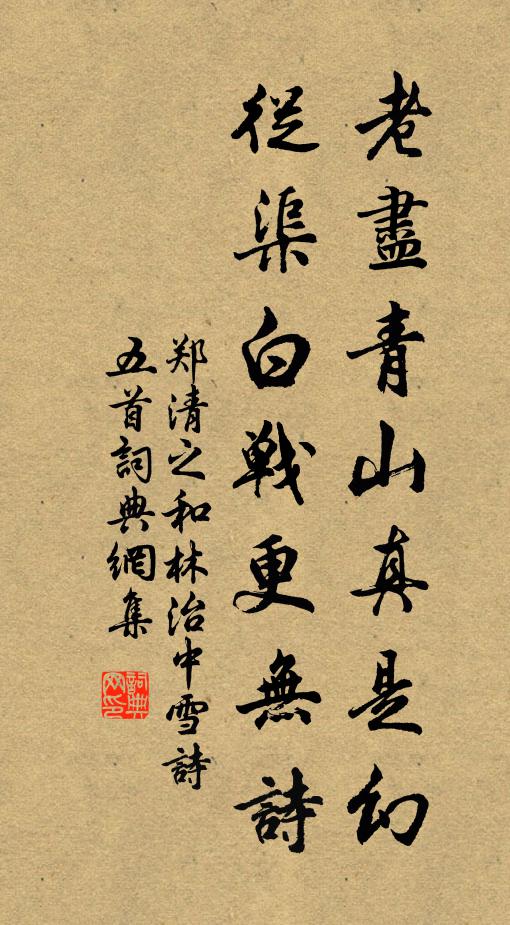 老盡青山真是幻
從渠白戰更無詩
郑清之和林治中雪詩
五首詞典網集
詞典
网印